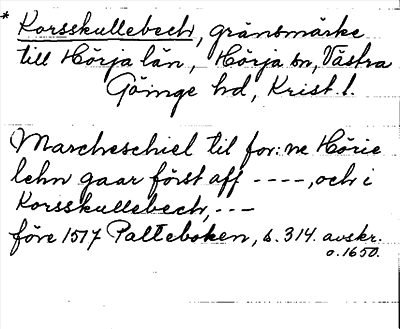 * Korsskullebech, gränsmärke
till Hörja län, Hörja sn, Västra
Göinge hd, Krist. l.
Marcheschiel til for:ne Hörie
lehn gaar först aff ----, och i
Korsskullebech, ---
före 1517 Palteboken, s. 314. avskr.
o. 1650.